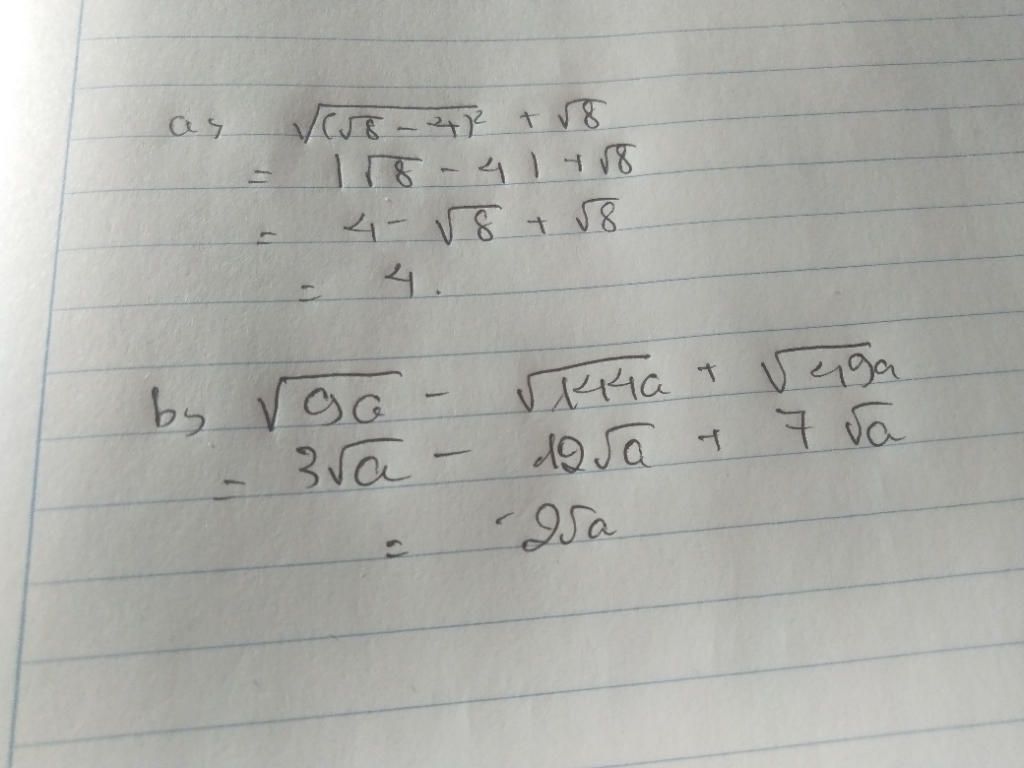 a, √(√8 - 4)² + √8
= |√8 - 4| + √8
= 4 - √8 + √8
= 4.
b, √9a - √144a + √49a
= 3√a - 12√a + 7√a
= -2√a